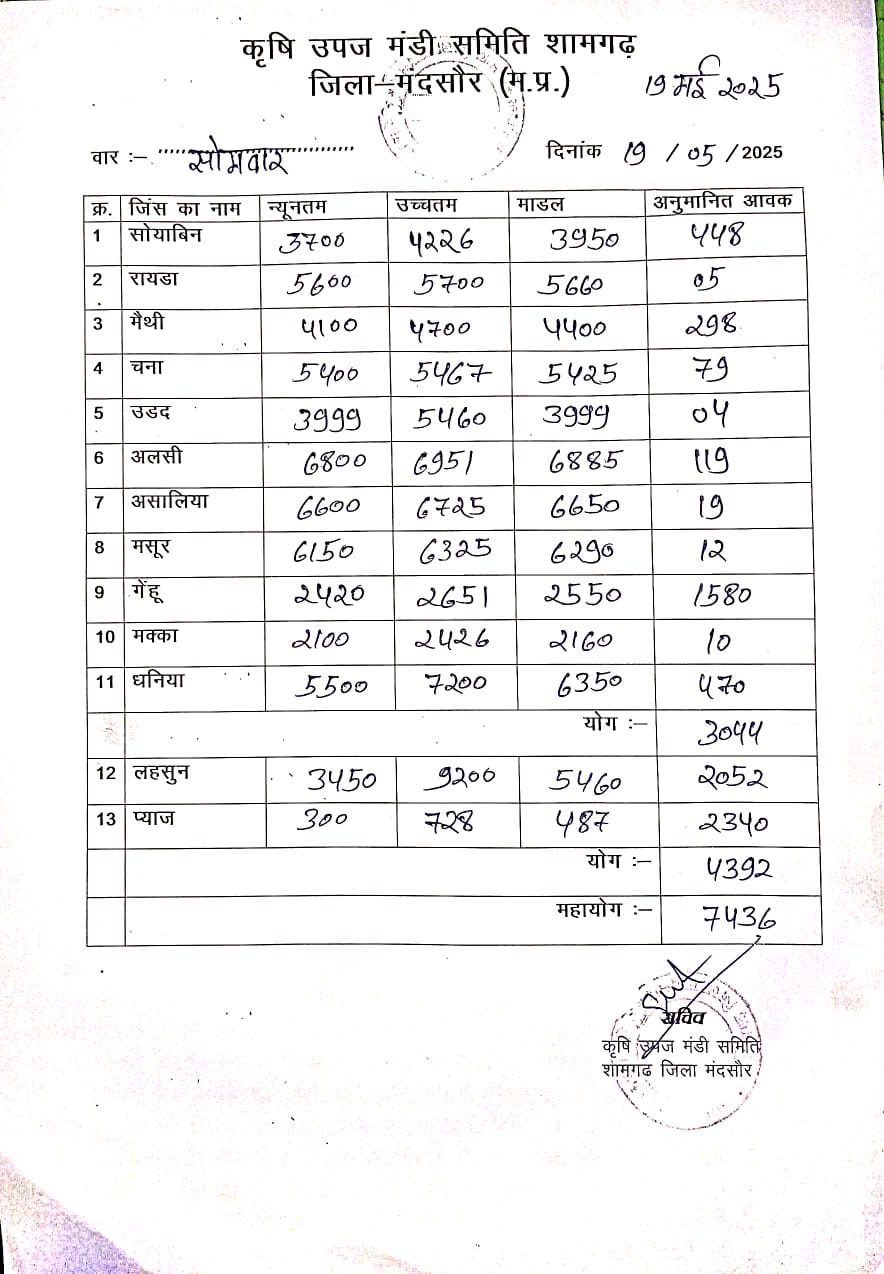 कृषि उपज मंडी समिति शामगढ़
जिला–मंदसौर (म.प्र.)
19 मई 2025
वार :– सोमवार दिनांक 19 / 05 / 2025
क्र. जिंस का नाम न्यूनतम उच्चतम माडल अनुमानित आवक
1 सोयाबिन 3700 4226 3950 448
2 रायडा 5600 5700 5660 05
3 मैथी 4100 4700 4400 298
4 चना 5400 5467 5425 79
5 उडद 3999 5460 3999 04
6 अलसी 6800 6951 6885 119
7 असालिया 6600 6725 6650 19
8 मसूर 6150 6325 6290 12
9 गेंहू 2420 2651 2550 1580
10 मक्का 2100 2426 2160 10
11 धनिया 5500 7200 6350 470
योग :– 3044
12 लहसुन 3450 9200 5460 2052
13 प्याज 300 728 487 2340
योग :– 4392
महायोग :– 7436
सचिव
कृषि उपज मंडी समिति
शामगढ जिला मंदसौर